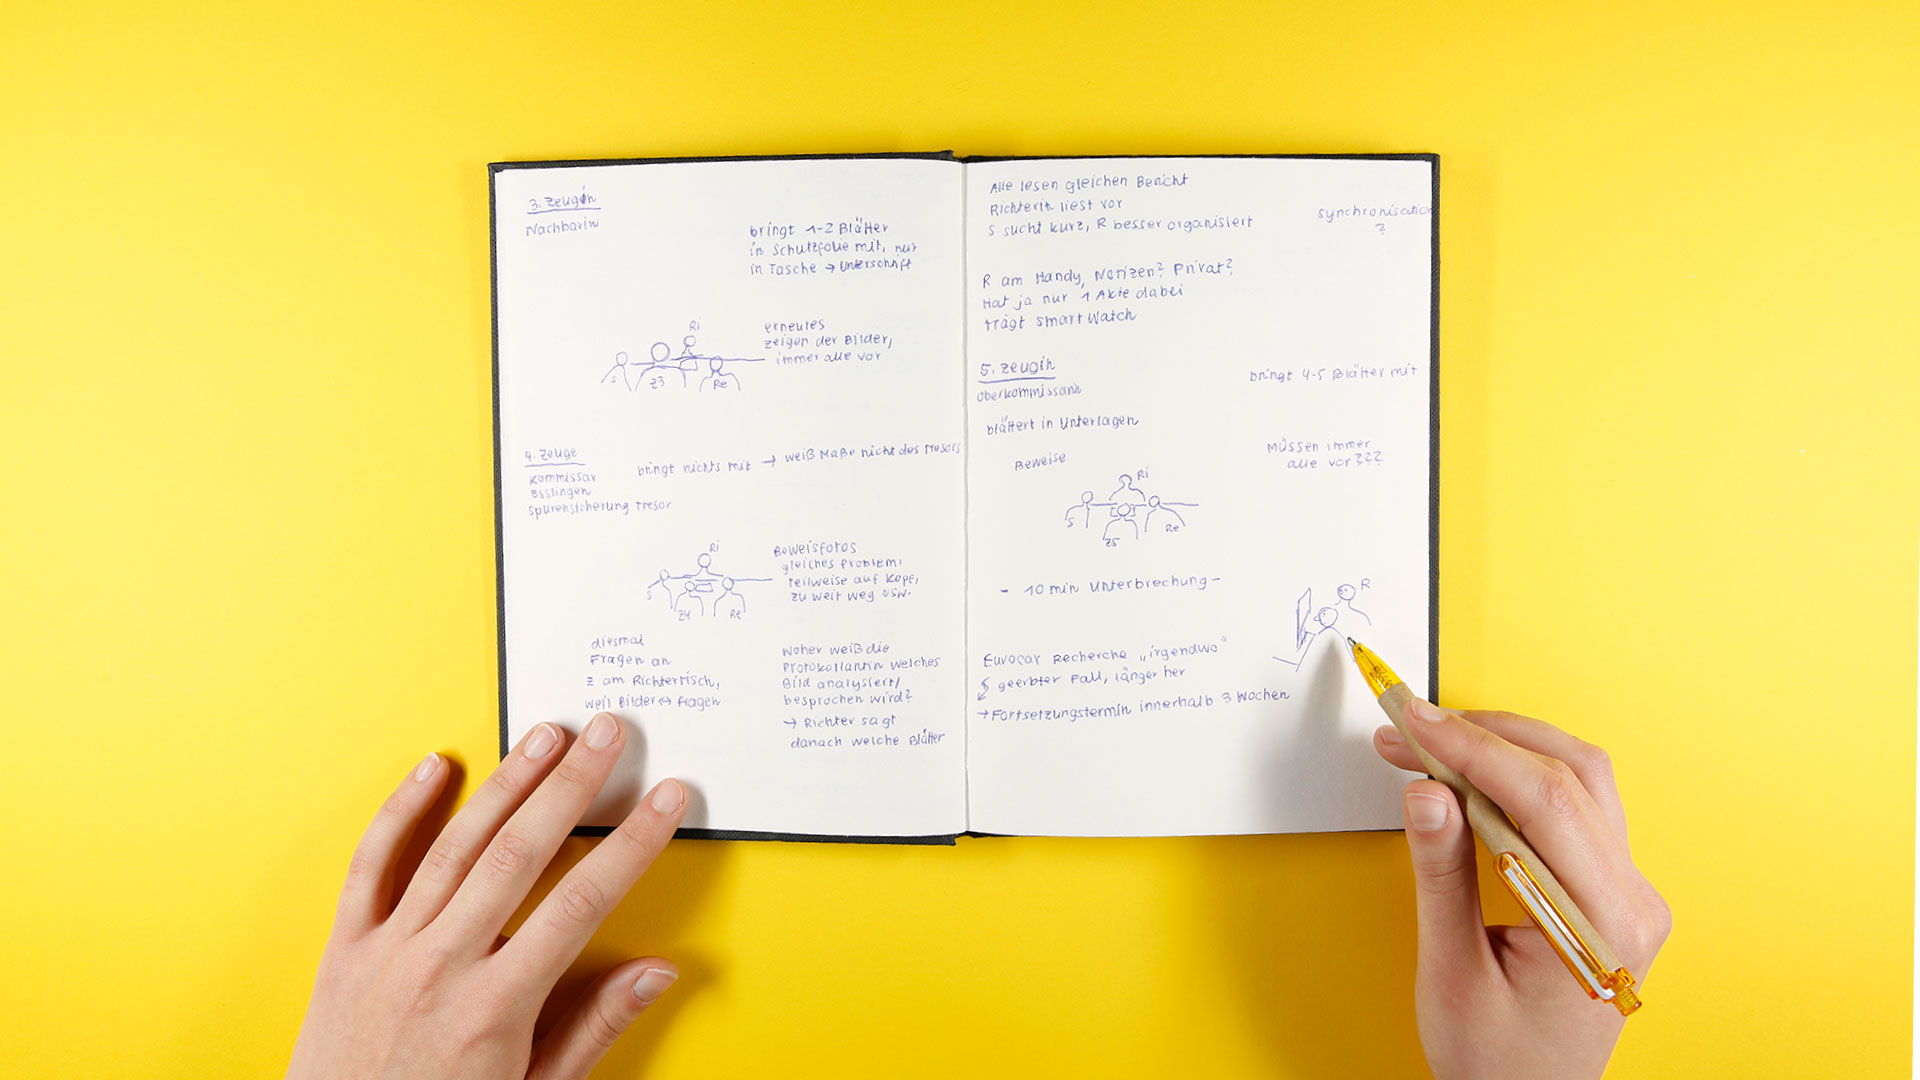 3. Zeugin
Nachbarin
bringt 1-2 Blätter
in Schutzfolie mit, nur
in Tasche → Unterschrift
Ri
S
Z3
Re
erneutes
zeigen der Bilder,
immer alle vor
4. Zeuge
Kommissar
Esslingen
Spurensicherung Tresor
bringt nichts mit → weiß Maße nicht des Tresors
Ri
S
Z4
Re
Beweisfotos
gleiches Problem:
teilweise auf Kopf,
zu weit weg usw.
diesmal
Fragen an
Z am Richtertisch,
weil Bilder ↔ Fragen
Woher weiß die
Protokollantin welches
Bild analysiert/
besprochen wird?
→ Richter sagt
danach welche Blätter
Alle lesen gleichen Bericht
RichterIn liest vor
S sucht kurz, R besser organisiert
synchronisation
?
R am Handy, Notizen? Privat?
Hat ja nur 1 Akte dabei
trägt Smart Watch
5. Zeugin
Oberkommissarin
bringt 4-5 Blätter mit
blättert in Unterlagen
Beweise
Müssen immer
alle vor???
Ri
S
Z5
Re
- 10 min Unterbrechung -
R
Eurocar Recherche „irgendwo“
geerbter Fall, länger her
→ Fortsetzungstermin innerhalb 3 Wochen